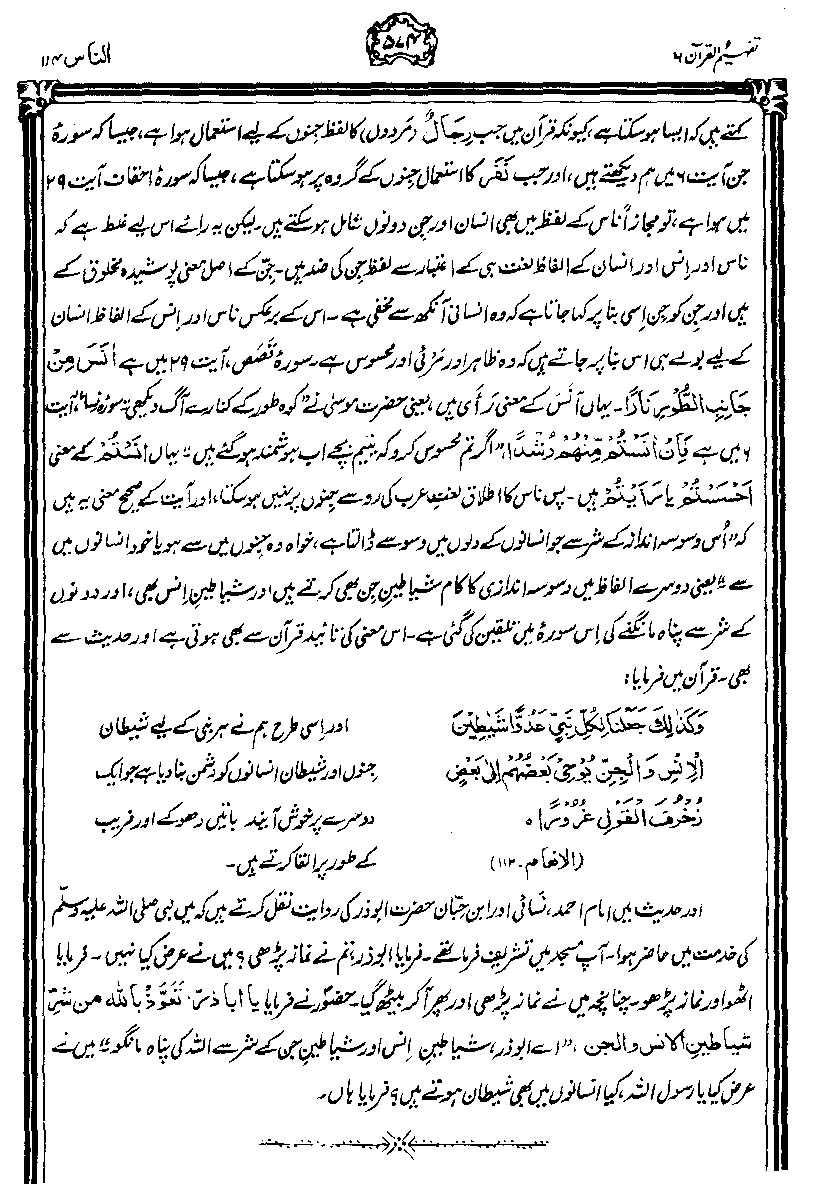 تفہیم القرآن ۶
۵۷۴
الناس ۱۱۴
کہتے ہیں کہ ایسا ہو سکتا ہے، کیونکہ قرآن میں جب رِجَالٌ (مردوں) کا لفظ جنوں کے لیے استعمال ہوا ہے، جیسا کہ سورۂ
جن آیت ۶ میں ہم دیکھتے ہیں، اور جب نَفَر کا استعمال جنوں کے گروہ پر ہو سکتا ہے، جیسا کہ سورۂ احقاف آیت ۲۹
میں ہوا ہے، تو مجازاً ناس کے لفظ میں بھی انسان اور جن دونوں شامل ہو سکتے ہیں۔ لیکن یہ رائے اس لیے غلط ہے کہ
ناس اور اِنس اور انسان کے الفاظ لغت ہی کے اعتبار سے لفظ جن کی ضد ہیں۔ جِنّ کے اصل معنی پوشیدہ مخلوق کے
ہیں اور جن کو جن اِسی بنا پر کہا جاتا ہے کہ وہ انسانی آنکھ سے مخفی ہے۔ اس کے برعکس ناس اور اِنس کے الفاظ انسان
کے لیے بولے ہی اس بنا پر جاتے ہیں کہ وہ ظاہر اور مرئی اور محسوس ہے۔ سورۂ قَصَص، آیت ۲۹ میں ہے اٰنَسَ مِنْ
جَانِبِ الطُّوْرِ نَارًا۔ یہاں آنَسَ کے معنی رَأٰی ہیں، یعنی حضرت موسیٰ نے "کوہ طور کے کنارے آگ دیکھی"۔ سورۂ نساء، آیت
۶ میں ہے فَاِنْ اٰنَسْتُمْ مِّنْهُمْ رُشْدًا "اگر تم محسوس کرو کہ یتیم بچے اب ہوشمند ہو گئے ہیں" یہاں اٰنَسْتُمْ کے معنی
اَحْسَسْتُمْ یا رَأَیْتُمْ ہیں۔ پس ناس کا اطلاق لغتِ عرب کی رو سے جنوں پر نہیں ہو سکتا، اور آیت کے صحیح معنی یہ ہیں
کہ "اُس وسوسہ انداز کے شر سے جو انسانوں کے دلوں میں وسوسے ڈالتا ہے، خواہ وہ جنوں میں سے ہو یا خود انسانوں میں
سے" یعنی دوسرے الفاظ میں وسوسہ اندازی کا کام شیاطینِ جن بھی کرتے ہیں اور شیاطینِ اِنس بھی، اور دونوں
کے شر سے پناہ مانگنے کی اِس سورۂ میں تلقین کی گئی ہے۔ اس معنی کی تائید قرآن سے بھی ہوتی ہے اور حدیث سے
بھی۔ قرآن میں فرمایا:
وَكَذٰلِكَ جَعَلْنَا لِكُلِّ نَبِيٍّ عَدُوًّا شَيٰطِيْنَ
الْاِنْسِ وَالْجِنِّ يُوْحِيْ بَعْضُهُمْ اِلٰى بَعْضٍ
زُخْرُفَ الْقَوْلِ غُرُوْرًا ٥
(الانعام۔ ۱۱۲)
اور اِسی طرح ہم نے ہر نبی کے لیے شیطان
جنوں اور شیطان انسانوں کو دشمن بنا دیا ہے جو ایک
دوسرے پر خوش آیند باتیں دھوکے اور فریب
کے طور پر القا کرتے ہیں۔
اور حدیث میں امام احمد، نسائی اور ابن حِبّان حضرت ابوذر کی روایت نقل کرتے ہیں کہ میں نبی صلی اللہ علیہ وسلّم
کی خدمت میں حاضر ہوا۔ آپ مسجد میں تشریف فرما تھے۔ فرمایا ابوذر، تم نے نماز پڑھی؟ میں نے عرض کیا نہیں۔ فرمایا
اٹھو اور نماز پڑھو۔ چنانچہ میں نے نماز پڑھی اور پھر آ کر بیٹھ گیا۔ حضورؐ نے فرمایا یا اباذر، تَعَوَّذْ بِاللهِ من شرّ
شیاطین الانس والجن، "اے ابوذر، شیاطینِ اِنس اور شیاطینِ جن کے شر سے اللہ کی پناہ مانگو" میں نے
عرض کیا یا رسول اللہ، کیا انسانوں میں بھی شیطان ہوتے ہیں؟ فرمایا ہاں۔